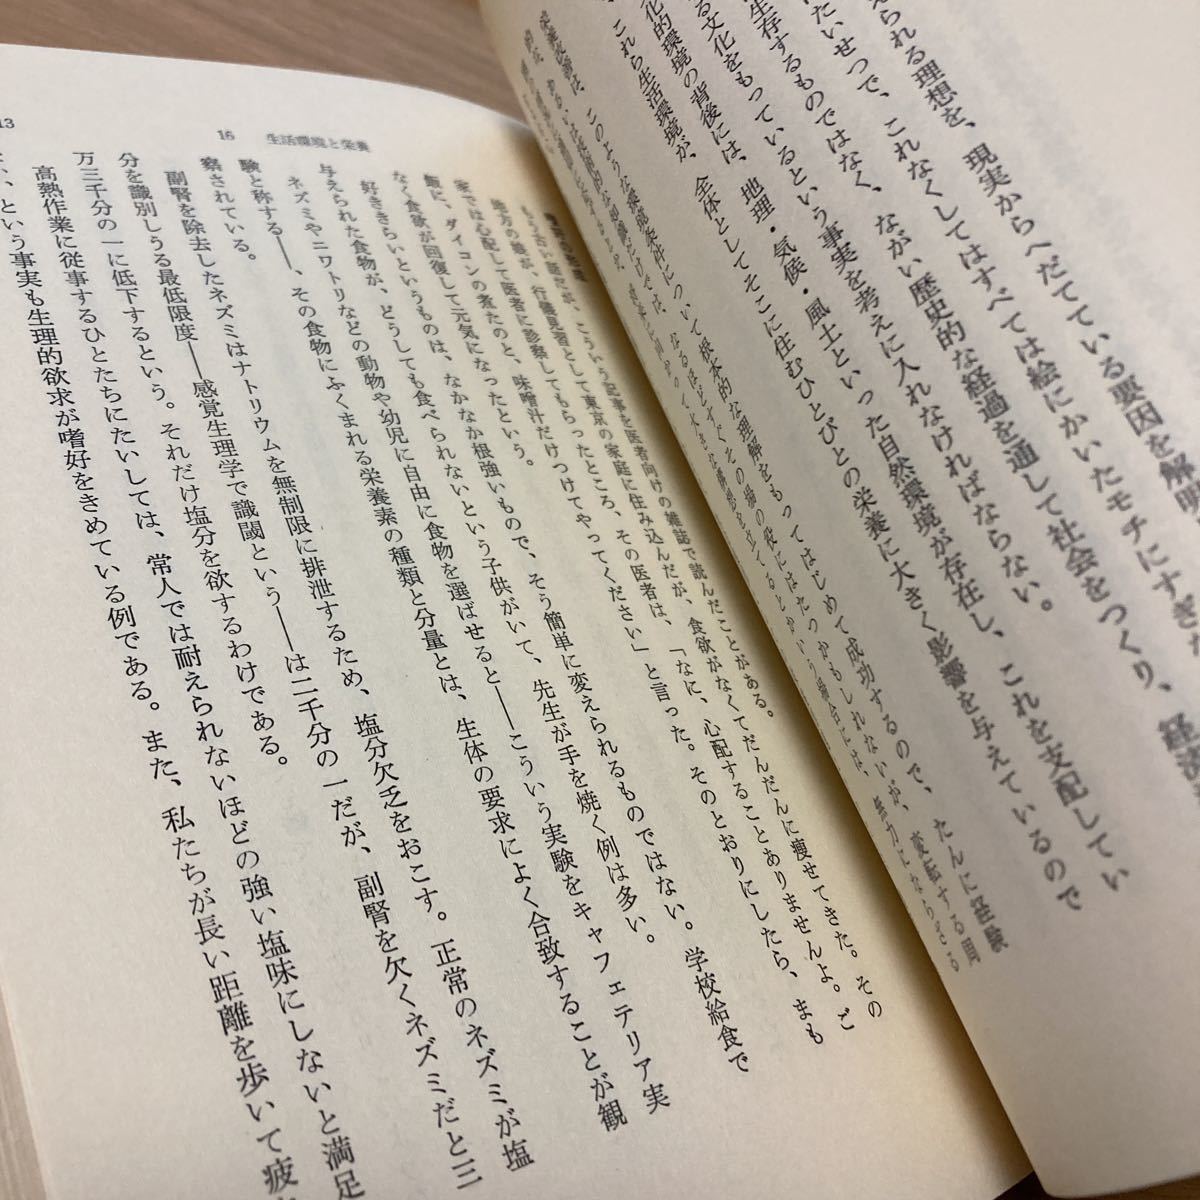 えられる理想を、現実からへだてている要因を解明
たいせつで、これなくしてはすべては絵にかいたモチにすぎな
生存するものではなく、ながい歴史的な経過を通して社会をつくり、経済
る文化をもっているという事実を考えに入れなければならない。
化的環境の背後には、地理・気候・風土といった自然環境が存在し、これを支配してい
、これら生活環境が、全体としてそこに住むひとびとの栄養に大きく影響を与えているので
栄養改善は、このような環境条件について根本的な理解をもってはじめて成功するので、たんに経験
なるほどすぐその場の役にはたつかもしれないが、変転する周
大きな構想を立てるとかいう場合には、無力にならざる
16 生活環境と栄養
もう古い話だが、こういう記事を医者向けの雑誌で読んだことがある。
地方の娘が、行儀見習として東京の家庭に住み込んだが、食欲がなくてだんだんに痩せてきた。その
家では心配して医者に診察してもらったところ、その医者は、「なに、心配することありませんよ。ご
飯に、ダイコンの煮たのと、味噌汁だけつけてやってください」と言った。そのとおりにしたら、まも
なく食欲が回復して元気になったという。
好ききらいというものは、なかなか根強いもので、そう簡単に変えられるものではない。学校給食で
、どうしても食べられないという子供がいて、先生が手を焼く例は多い。
ネズミやニワトリなどの動物や幼児に自由に食物を選ばせると――こういう実験をキャフェテリア実
験と称する――、その食物にふくまれる栄養素の種類と分量とは、生体の要求によく合致することが観
察されている。
副腎を除去したネズミはナトリウムを無制限に排泄するため、塩分欠乏をおこす。正常のネズミが塩
分を識別しうる最低限度――感覚生理学で識閾という――は二千分の一だが、副腎を欠くネズミだと三
万三千分の一に低下するという。それだけ塩分を欲するわけである。
高熱作業に従事するひとたちにたいしては、常人では耐えられないほどの強い塩味にしないと満足
という事実も生理的欲求が嗜好をきめている例である。また、私たちが長い距離を歩いて疲
13